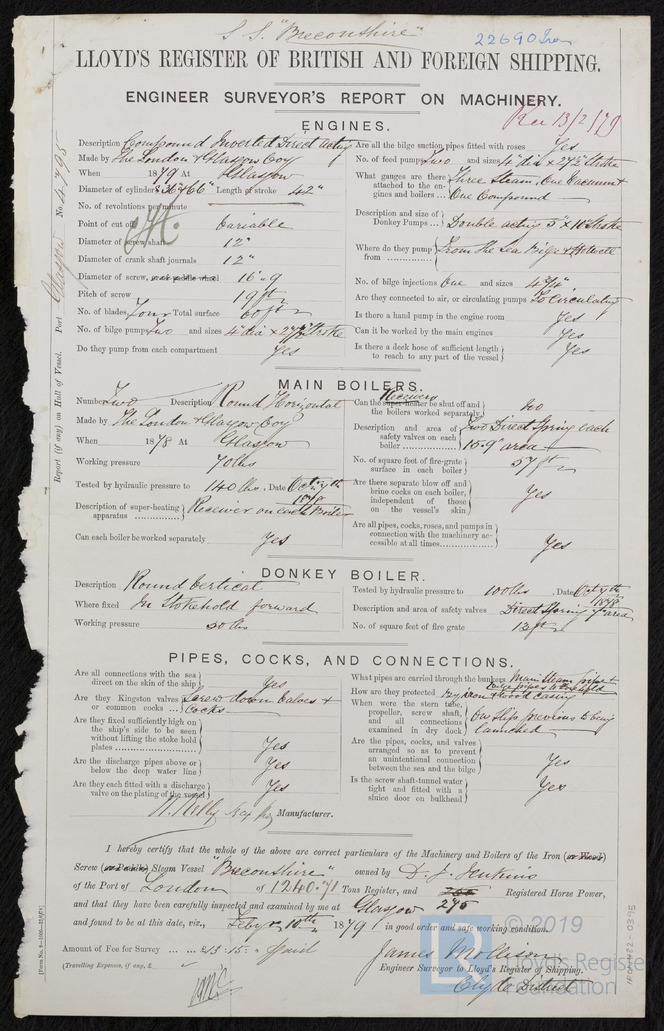 S.S. "Breconshire"
22690 Iron
LLOYD'S REGISTER OF BRITISH AND FOREIGN SHIPPING.
ENGINEER SURVEYOR'S REPORT ON MACHINERY.
Rec 13/2/79
ENGINES.
Description Compound Inverted Direct Acting
Made by The London & Glasgow Coy
When 1879 At Glasgow
Diameter of cylinders 36" & 66" Length of stroke 42"
No. of revolutions per minute
Point of cut off Variable
Diameter of screw shaft 12"
Diameter of crank shaft journals 12"
Diameter of screw, or of paddle wheel 16-9
Pitch of screw 19 ft
No. of blades Four Total surface 60 ft
No. of bilge pumps Two and sizes 4" dia x 27½" Stroke
Do they pump from each compartment Yes
Are all the bilge suction pipes fitted with roses Yes
No. of feed pumps Two and sizes 4" dia x 27½ Stroke
What gauges are there attached to the engines and boilers Three Steam, One Vacuum & One Compound
Description and size of Donkey Pumps Double acting 5" x 10" Stroke
Where do they pump from From the Sea Bilge & Hotwell
No. of bilge injections One and sizes
Are they connected to air, or circulating pumps To Circulating
Is there a hand pump in the engine room Yes
Can it be worked by the main engines Yes
Is there a deck hose of sufficient length to reach to any part of the vessel Yes
MAIN BOILERS.
Number Two Description Round Horizontal
Made by The London & Glasgow Coy
When 1878 At Glasgow
Working pressure 70 lbs
Tested by hydraulic pressure to 140 lbs. Date Oct 7th 1878
Description of super-heating apparatus Receiver on each Boiler
Can each boiler be worked separately Yes
Can the super-heater be shut off and the boilers worked separately Receivers No
Description and area of safety valves on each boiler Two Direct Spring each 15.9" area
No. of square feet of fire-grate surface in each boiler 57 ft
Are there separate blow off and brine cocks on each boiler, independent of those on the vessel's skin Yes
Are all pipes, cocks, roses, and pumps in connection with the machinery accessible at all times Yes
DONKEY BOILER.
Description Round Vertical
Where fixed In Stokehold forward
Working pressure 50 lbs
Tested by hydraulic pressure to 100 lbs. Date Oct 7th 1878
Description and area of safety valves Direct Spring area
No. of square feet of fire grate 13 ft
PIPES, COCKS, AND CONNECTIONS.
Are all connections with the sea direct on the skin of the ship Yes
Are they Kingston valves or common cocks Screw down Valves & Cocks
Are they fixed sufficiently high on the ship's side to be seen without lifting the stoke hold plates Yes
Are the discharge pipes above or below the deep water line Yes
Are they each fitted with a discharge valve on the plating of the vessel Yes
What pipes are carried through the bunkers Main Steam pipes &
How are they protected by iron & wood casing
When were the stern tube, propeller, screw shaft, and all connections examined in dry dock On Slip previous to being launched
Are the pipes, cocks, and valves arranged so as to prevent an unintentional connection between the sea and the bilge Yes
Is the screw shaft-tunnel water tight and fitted with a sluice door on bulkhead Yes
Manufacturer.
I hereby certify that the whole of the above are correct particulars of the Machinery and Boilers of the Iron (or Wood)
Screw (or Paddle) Steam Vessel "Breconshire" owned by D. J. Jenkins
of the Port of London of 1240.71 Tons Register, and 275 Registered Horse Power,
and that they have been carefully inspected and examined by me at Glasgow
and found to be at this date, viz., Feby 10th 1879 in good order and safe working condition.
Amount of Fee for Survey £13.15.- paid
(Travelling Expenses, if any, £
James Mollison
Engineer Surveyor to Lloyd's Register of Shipping.
Clyde District
Report (if any) on Hull of Vessel. Port Glasgow No. 4795
© 2019
Lloyd's Register
Foundation